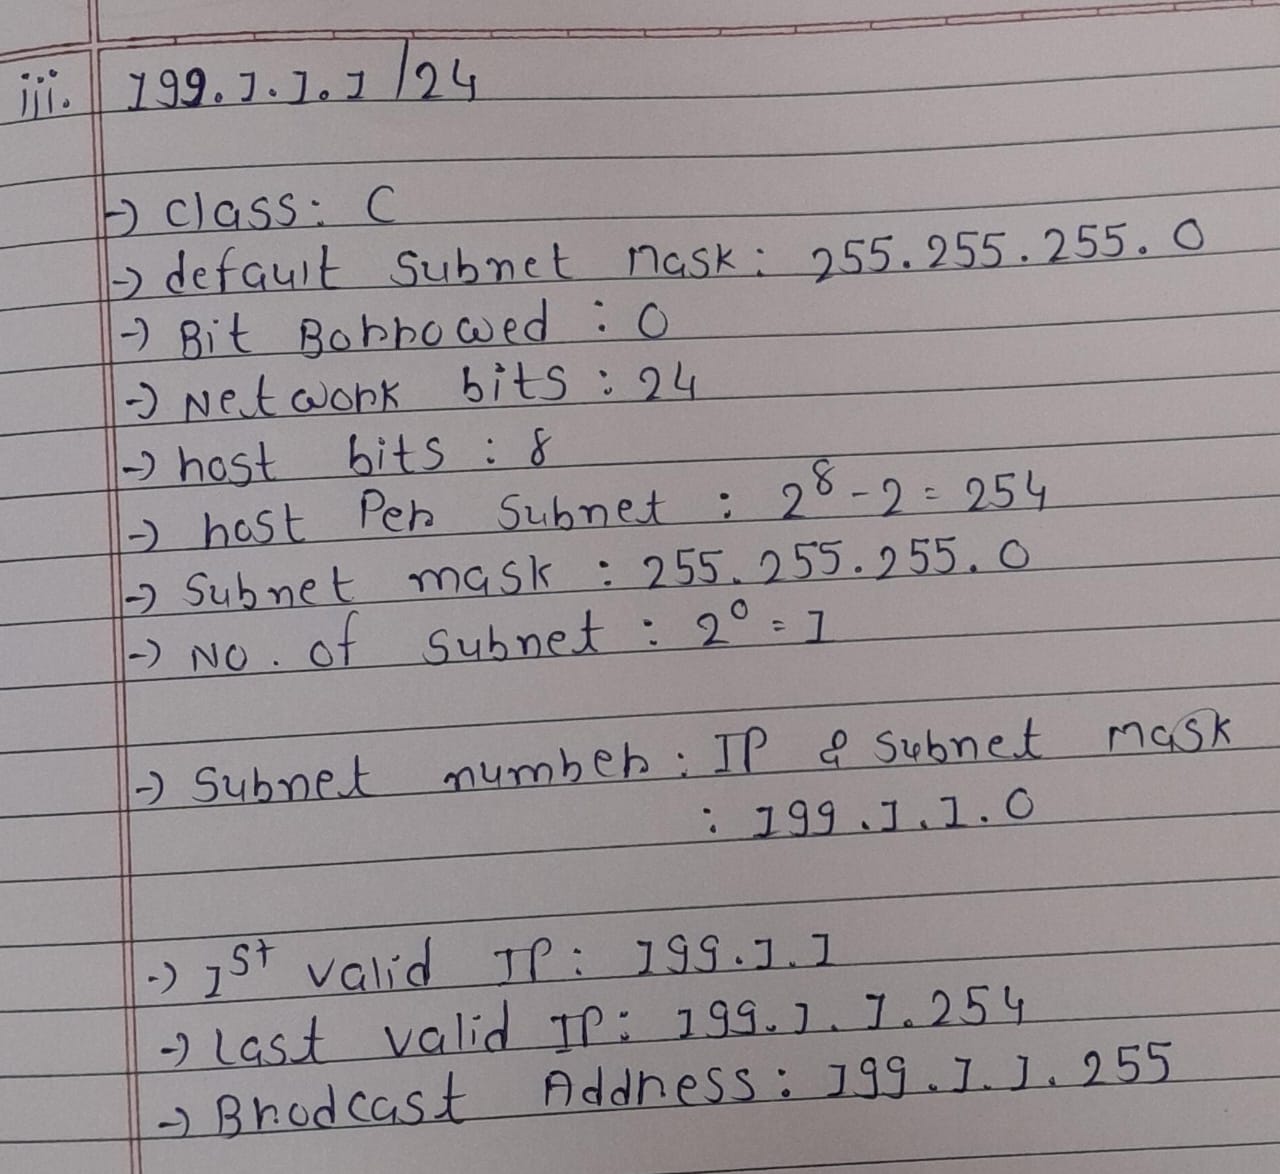 iii. 199.1.1.1 /24
→ class: C
→ default subnet mask: 255.255.255.0
→ Bit Borrowed : 0
→ Network bits : 24
→ host bits : 8
→ host Per Subnet : 2⁸-2 = 254
→ Subnet mask : 255.255.255.0
→ NO. of Subnet : 2⁰ = 1
→ Subnet number : IP & Subnet mask
: 199.1.1.0
→ 1st valid IP: 199.1.1
→ Last valid IP: 199.1.1.254
→ Brodcast Address: 199.1.1.255